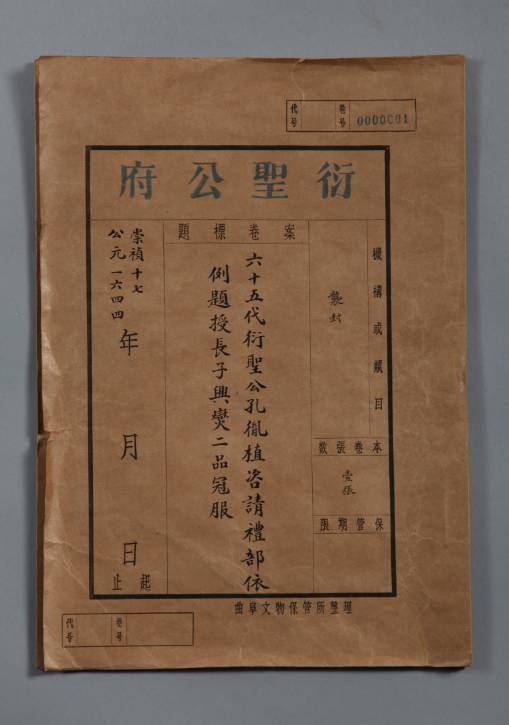 代號
卷號 0000001
衍聖公府
機構或類目
襲封
本卷張數
壹張
保管期限
案卷標題
六十五代衍聖公孔胤植咨請禮部依
例題授長子興燮二品冠服
崇禎十七
公元一六四四
年 月 日
起
止
曲阜文物保管所整理
代號
卷號